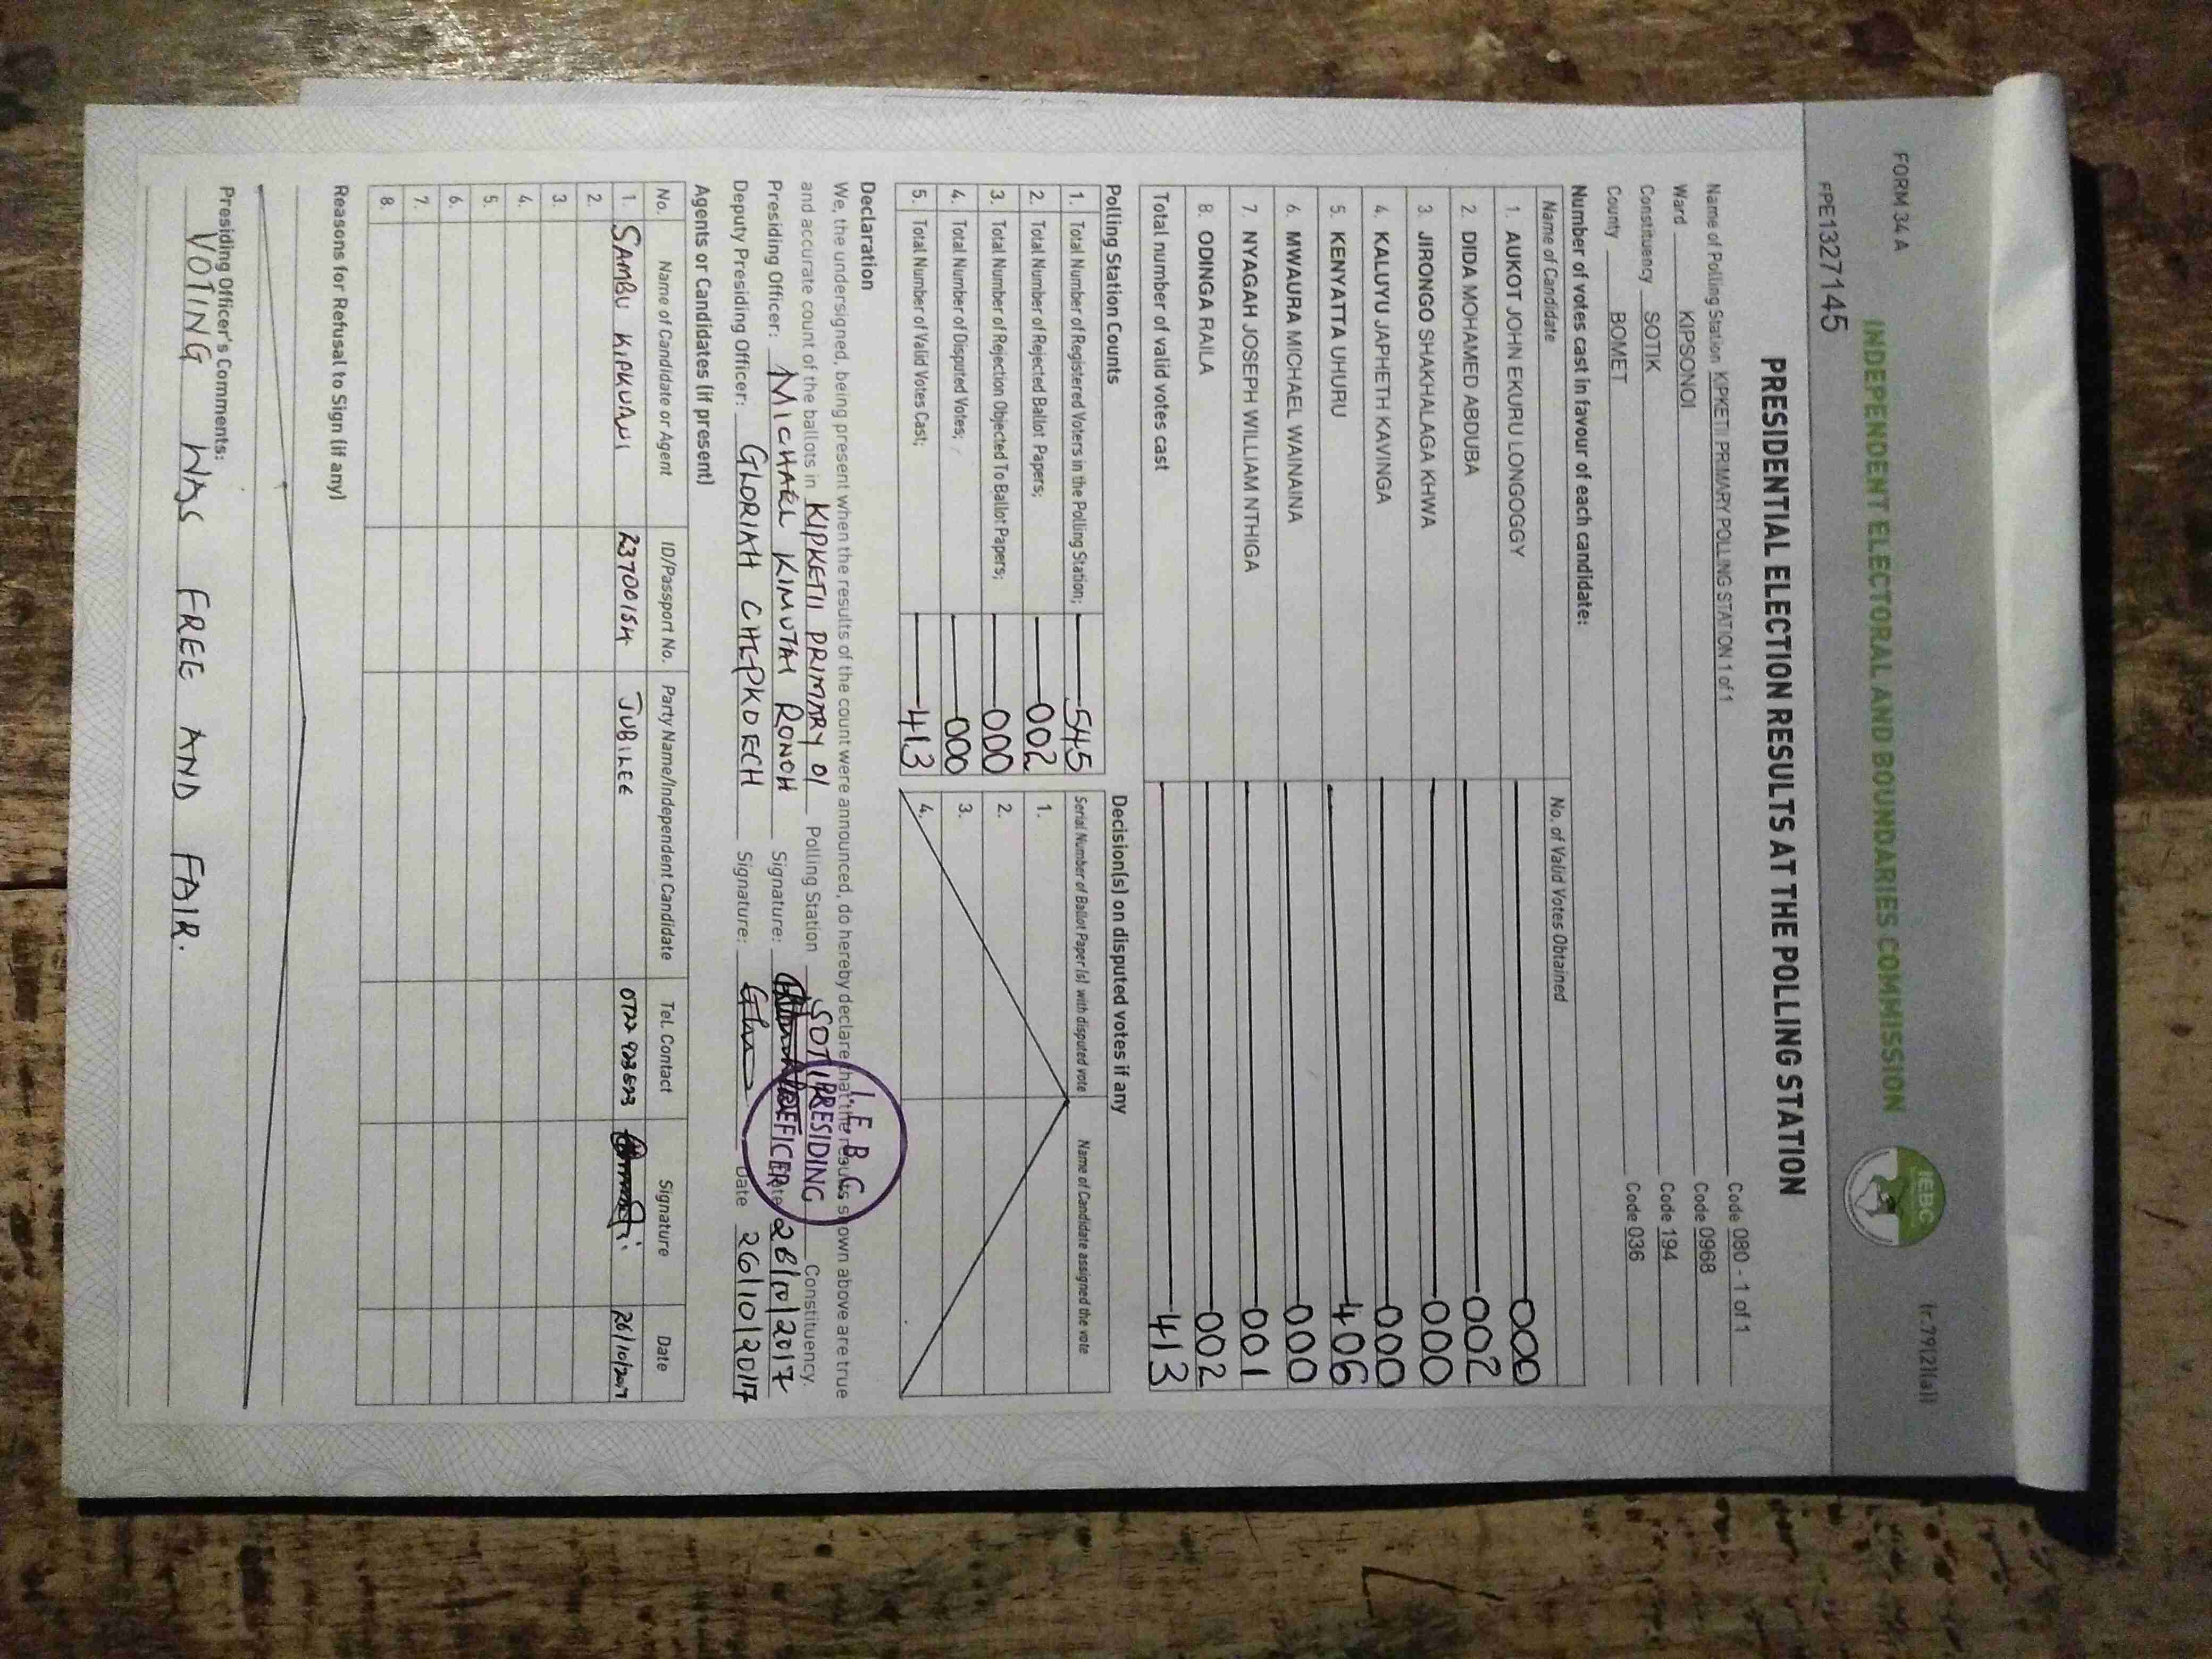 FORM 34 A
(r.79(2)(a))
INDEPENDENT ELECTORAL AND BOUNDARIES COMMISSION
IEBC
FPE1327145
PRESIDENTIAL ELECTION RESULTS AT THE POLLING STATION
Name of Polling Station KIPKETII PRIMARY POLLING STATION 1 of 1 Code 080 - 1 of 1
Ward KIPSONOI Code 0968
Constituency SOTIK Code 194
County BOMET Code 036
Number of votes cast in favour of each candidate:
Name of Candidate No. of Valid Votes Obtained
1. AUKOT JOHN EKURU LONGOGGY 000
2. DIDA MOHAMED ABDUBA 002
3. JIRONGO SHAKHALAGA KHWA 000
4. KALUYU JAPHETH KAVINGA 000
5. KENYATTA UHURU 406
6. MWAURA MICHAEL WAINAINA 000
7. NYAGAH JOSEPH WILLIAM NTHIGA 001
8. ODINGA RAILA 002
Total number of valid votes cast 413
Polling Station Counts
1. Total Number of Registered Voters in the Polling Station; 545
2. Total Number of Rejected Ballot Papers; 002
3. Total Number of Rejection Objected To Ballot Papers; 000
4. Total Number of Disputed Votes; 000
5. Total Number of Valid Votes Cast; 413
Decision(s) on disputed votes if any
Serial Number of Ballot Paper (s) with disputed vote Name of Candidate assigned the vote
1.
2.
3.
4.
Declaration
We, the undersigned, being present when the results of the count were announced, do hereby declare that the results shown above are true
and accurate count of the ballots in KIPKETII PRIMARY 01 Polling Station SOTIK Constituency.
Presiding Officer: MICHAEL KIMUTAI RONOH Signature: Date 26/10/2017
Deputy Presiding Officer: GLORIAH CHEPKOECH Signature: Date 26/10/2017
I.E.B.C
PRESIDING
OFFICER
Agents or Candidates (if present)
No. Name of Candidate or Agent ID/Passport No. Party Name/Independent Candidate Tel. Contact Signature Date
1. SAMBU KIPKURUI 23700154 JUBILEE 26/10/2017
2.
3.
4.
5.
6.
7.
8.
Reasons for Refusal to Sign (if any)
Presiding Officer's Comments:
VOTING WAS FREE AND FAIR.